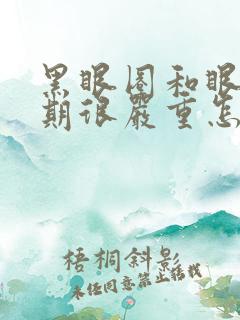 黑眼圈和眼
期很严重怎
梧桐斜影
未经同意禁止搭载